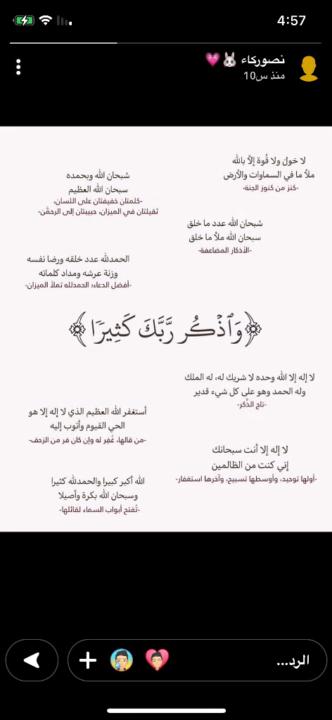 4:57
نصوركاء 🐰💗
منذ س10
لا حول ولا قوة إلا بالله
ملأ ما في السماوات والأرض
-كنز من كنوز الجنة-
سُبحان الله وبحمده
سبحان الله العظيم
-كلمتان خفيفتان على اللسان،
ثقيلتان في الميزان، حبيبتان إلى الرحمٰن-
سُبحان الله عدد ما خلق
سبحان الله ملأ ما خلق
-الأذكار المضاعفة-
الحمدلله عدد خلقه ورضا نفسه
وزنة عرشه ومداد كلماته
-أفضل الدعاء؛ الحمدلله تملأ الميزان-
﴿وَٱذْكُر رَّبَّكَ كَثِيرًا﴾
لا إله إلا الله وحده لا شريك له، له الملك
وله الحمد وهو على كل شيء قدير
-تاج الذّكر-
أستغفر الله العظيم الذي لا إله إلا هو
الحي القيوم وأتوب إليه
-من قالها، غُفِر له وإن كان فر من الزحف-
لا إله إلا أنت سبحانك
إني كنت من الظالمين
-أولها توحيد، وأوسطها تسبيح، وآخرها استغفار-
الله أكبر كبيرا والحمدلله كثيرا
وسبحان الله بكرة وأصيلا
-تُفتح أبواب السماء لقائلها-
الرد...